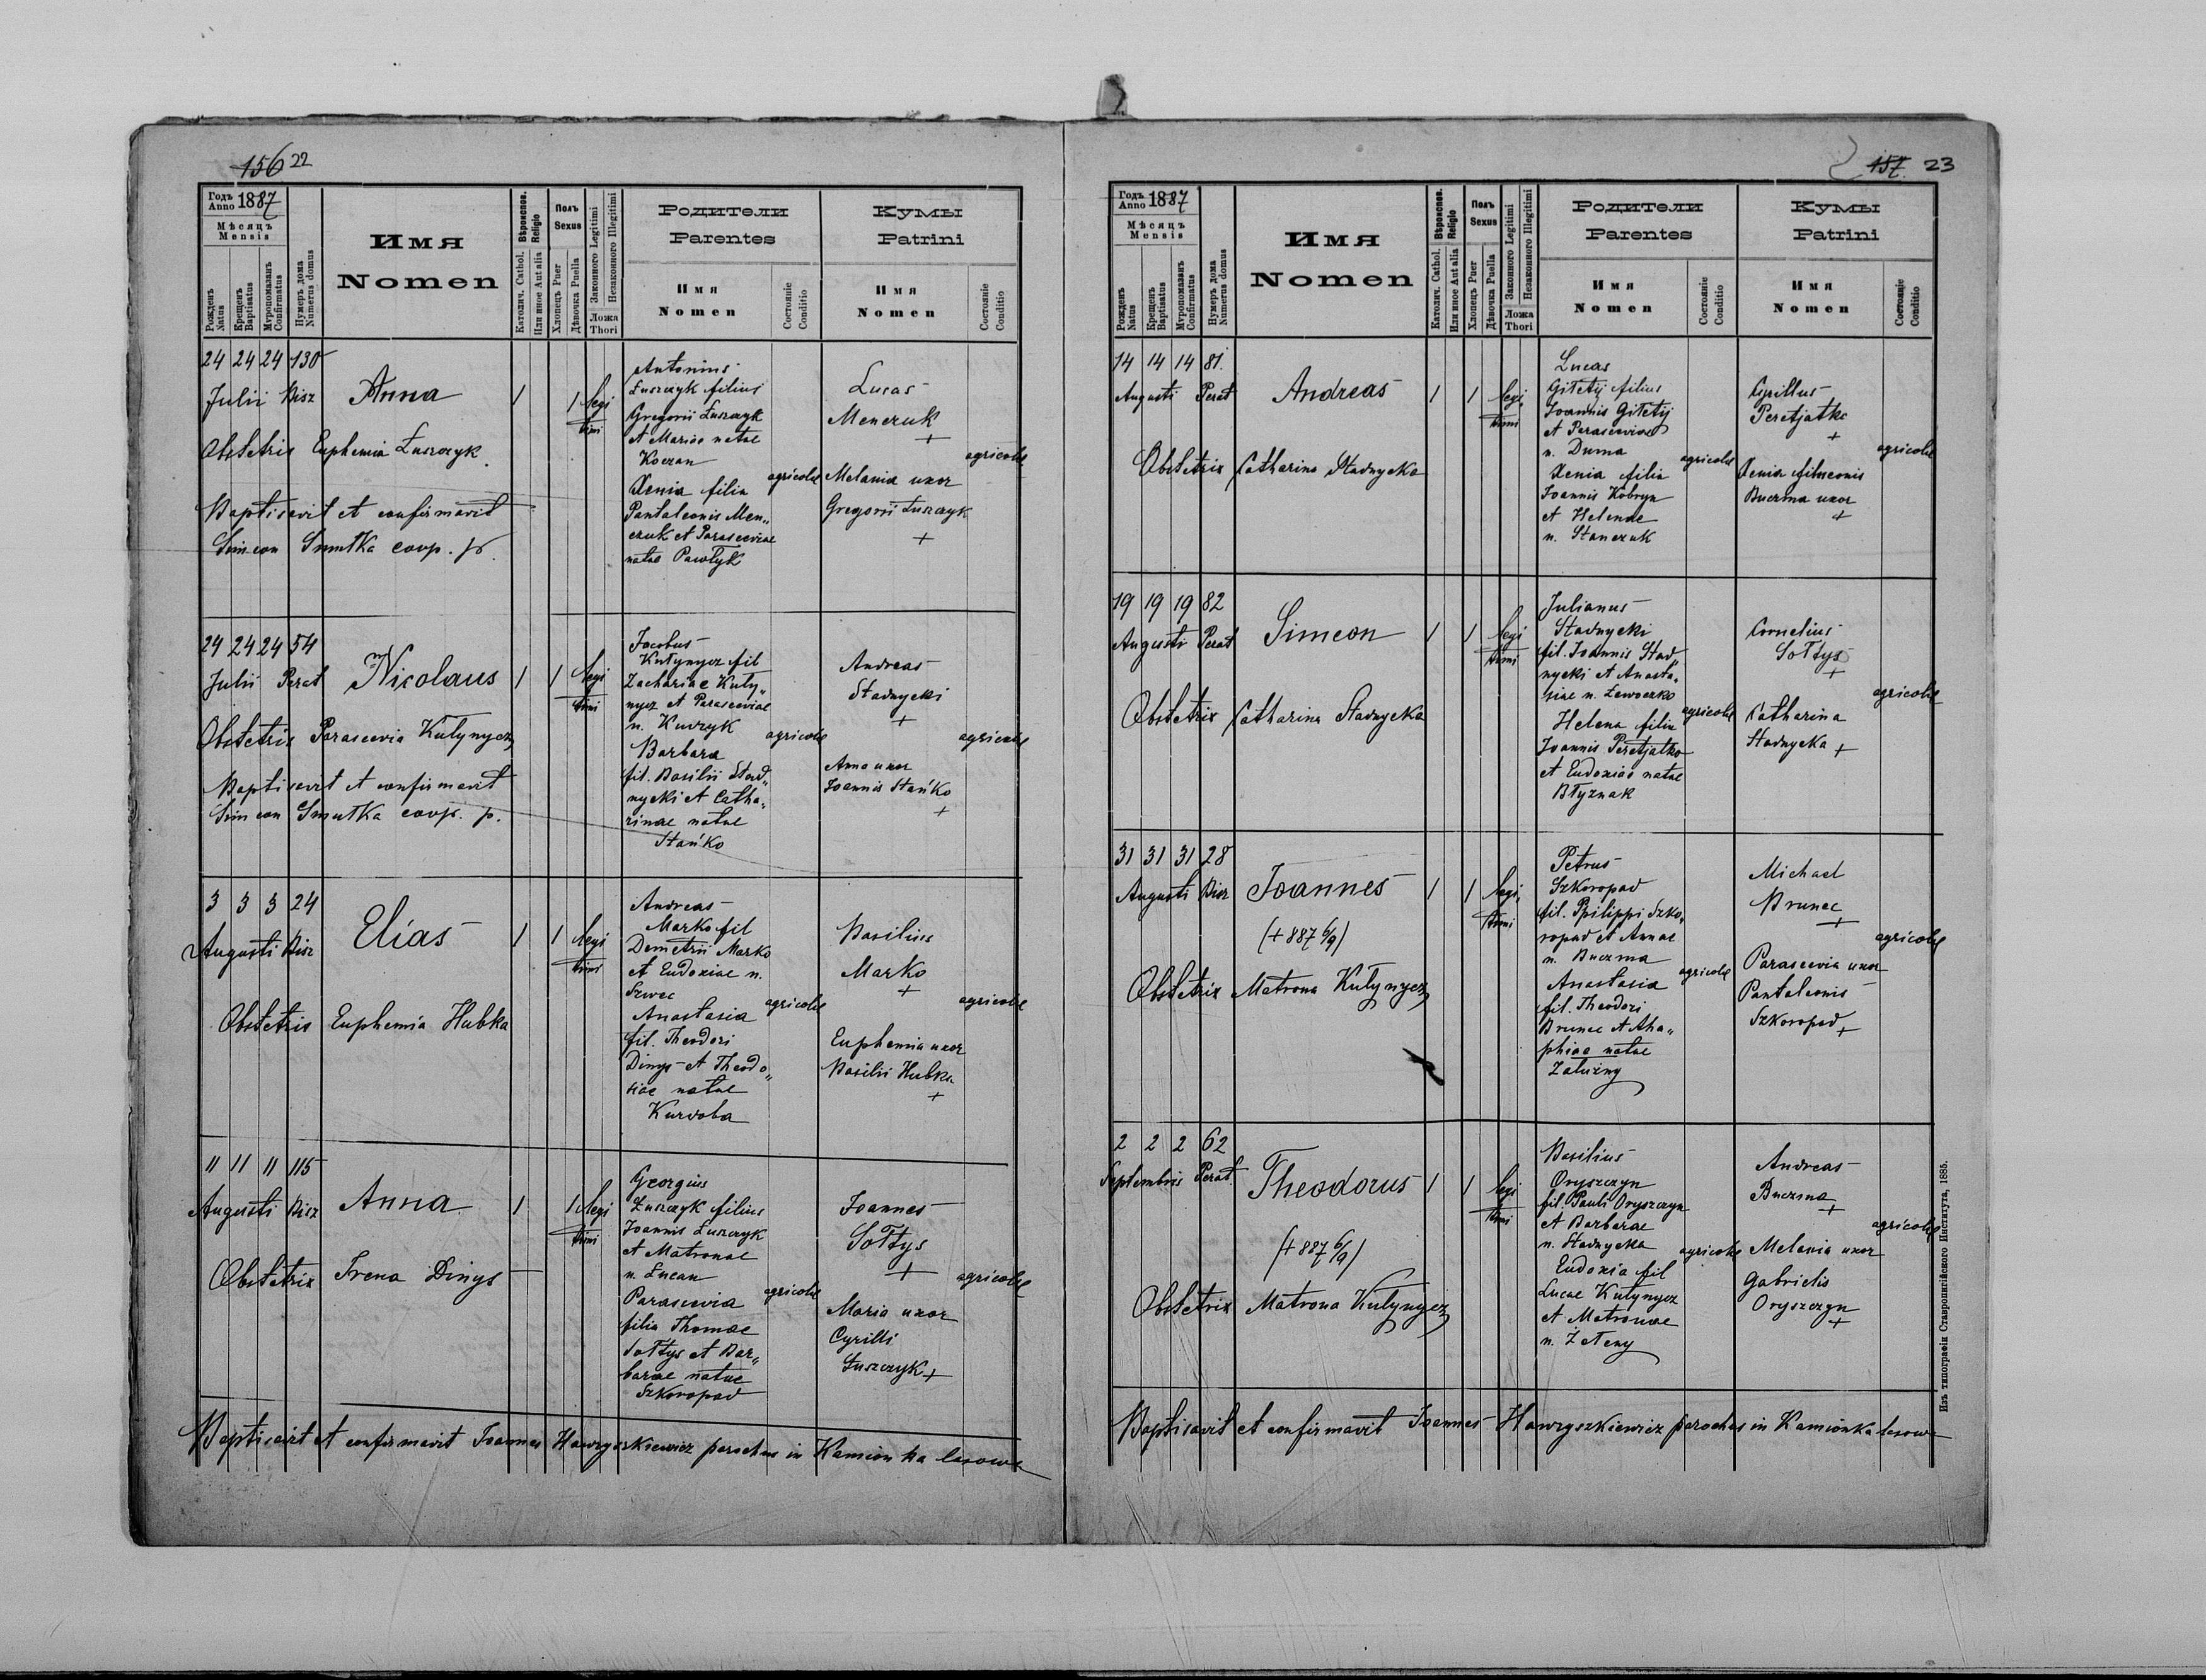 156 22
Годъ Anno 1887
Мѣсяцъ
Mensis
Рожденъ Natus
Крещенъ Baptisatus
Муропомазанъ Confirmatus
Нумеръ дома Numerus domus
Имя
Nomen
Вѣроиспов. Religio
Католич. Cathol.
Или иное Aut alia
Полъ
Sexus
Хлопецъ Puer
Дѣвочка Puella
Законного Legitimi
Незаконного Illegitimi
Ложа
Thori
Родители
Parentes
Имя
Nomen
Состояніе
Conditio
Кумы
Patrini
Имя
Nomen
Состояніе
Conditio
24 24 24 130
Julii Bisz
Anna
1 1 legi
timi
Obstetrix Euphemia Łuszczyk
Baptisavit et confirmavit
Simeon Smutka coop. p.
Antonius
Łuszczyk filius
Gregorii Łuszczyk
et Mariae natae
Koczan
Xenia filia
Pantaleonis Men„
czuk et Parasceviae
natae Pawłyk
agricolae
Lucas
Menczuk
+
Melania uxor
Gregorii Łuszczyk
+
agricolae
24 24 24 54
Julii Perat
Nicolaus
1 1 legi
timi
Obstetrix Parascevia Kułynycz
Baptisavit et confirmavit
Simeon Smutka coop. p.
Jacobus
Kułynycz fil
Zachariae Kuły„
nycz et Parasceviae
n. Kuczyk
Barbara
fil. Basilii Stad„
nycki et Catha„
rinae natae
Stańko
agricolae
Andreas
Stadnycki
+
Anna uxor
Joannis Stańko
+
agricolae
3 3 3 24
Augusti Bisz
Elias
1 1 legi
timi
Obstetrix Euphemia Hubka
Andreas
Marko fil
Demetrii Marko
et Eudoxiae n.
Szwec
Anastasia
fil. Theodori
Dinys et Theodo„
siae natae
Kurdoba
agricolae
Basilius
Marko
+
Euphemia uxor
Basilii Hubka
+
agricolae
11 11 11 115
Augusti Bisz
Anna
1 1 legi
timi
Obstetrix Irena Dinys
Georgius
Łuszczyk filius
Joannis Łuszczyk
et Matronae
n. Łucan
Parascevia
filia Thomae
Sołtys et Bar„
barae natae
Szkoropad
agricolae
Joannes
Sołtys
+
Maria uxor
Cyrilli
Łuszczyk +
agricolae
Baptisavit et confirmavit Joannes Hawryszkiewicz parochus in Kamionka lasowa
157 23
Годъ Anno 1887
Мѣсяцъ
Mensis
Рожденъ Natus
Крещенъ Baptisatus
Муропомазанъ Confirmatus
Нумеръ дома Numerus domus
Имя
Nomen
Вѣроиспов. Religio
Католич. Cathol.
Или иное Aut alia
Полъ
Sexus
Хлопецъ Puer
Дѣвочка Puella
Законного Legitimi
Незаконного Illegitimi
Ложа
Thori
Родители
Parentes
Имя
Nomen
Состояніе
Conditio
Кумы
Patrini
Имя
Nomen
Состояніе
Conditio
14 14 14 81.
Augusti Perat
Andreas
1 1 legi
timi
Obstetrix Catharina Stadnycka
Lucas
Giletij filius
Joannis Giletij
et Parasceviae
n. Duma
Xenia filia
Joannis Kobryn
et Helenae
n. Stanczuk
agricolae
Cyrillus
Peretjatko
+
Xenia Simeonis
Buczma uxor
+
agricolae
19 19 19 82
Augusti Perat
Simeon
1 1 legi
timi
Obstetrix Catharina Stadnycka
Julianus
Stadnycki
fil. Joannis Stad„
nycki et Anasta„
siae n. Lewoczko
Helena filia
Joannis Peretjatko
et Eudoxiae natae
Błyznak
agricolae
Cornelius
Sołtys
+
Catharina
Stadnycka +
agricolae
31 31 31 28
Augusti Bisz
Joannes
1 1 legi
timi
(+ 887 6/9)
Obstetrix Matrona Kułynycz
Petrus
Szkoropad
fil. Philippi Szko„
ropad et Annae
n. Buczma
Anastasia
fil. Theodori
Brunec et Aha„
phiae natae
Zalużny
agricolae
Michael
Brunec
+
Parascevia uxor
Pantaleonis
Szkoropad +
agricolae
2 2 2 62
Septembris Perat.
Theodorus
1 1 legi
timi
(+ 887 6/9)
Obstetrix Matrona Kułynycz
Basilius
Oryszczyn
fil. Pauli Oryszczyn
et Barbarae
n. Stadnycka
Eudoxia fil
Lucae Kułynycz
et Matronae
n. Zeleny
agricolae
Andreas
Buczma
+
Melania uxor
Gabrielis
Oryszczyn
+
agricolae
Baptisavit et confirmavit Joannes Hawryszkiewicz parochus in Kamionka lasowa
Изъ типографіи Ставропигійского Института, 1885.